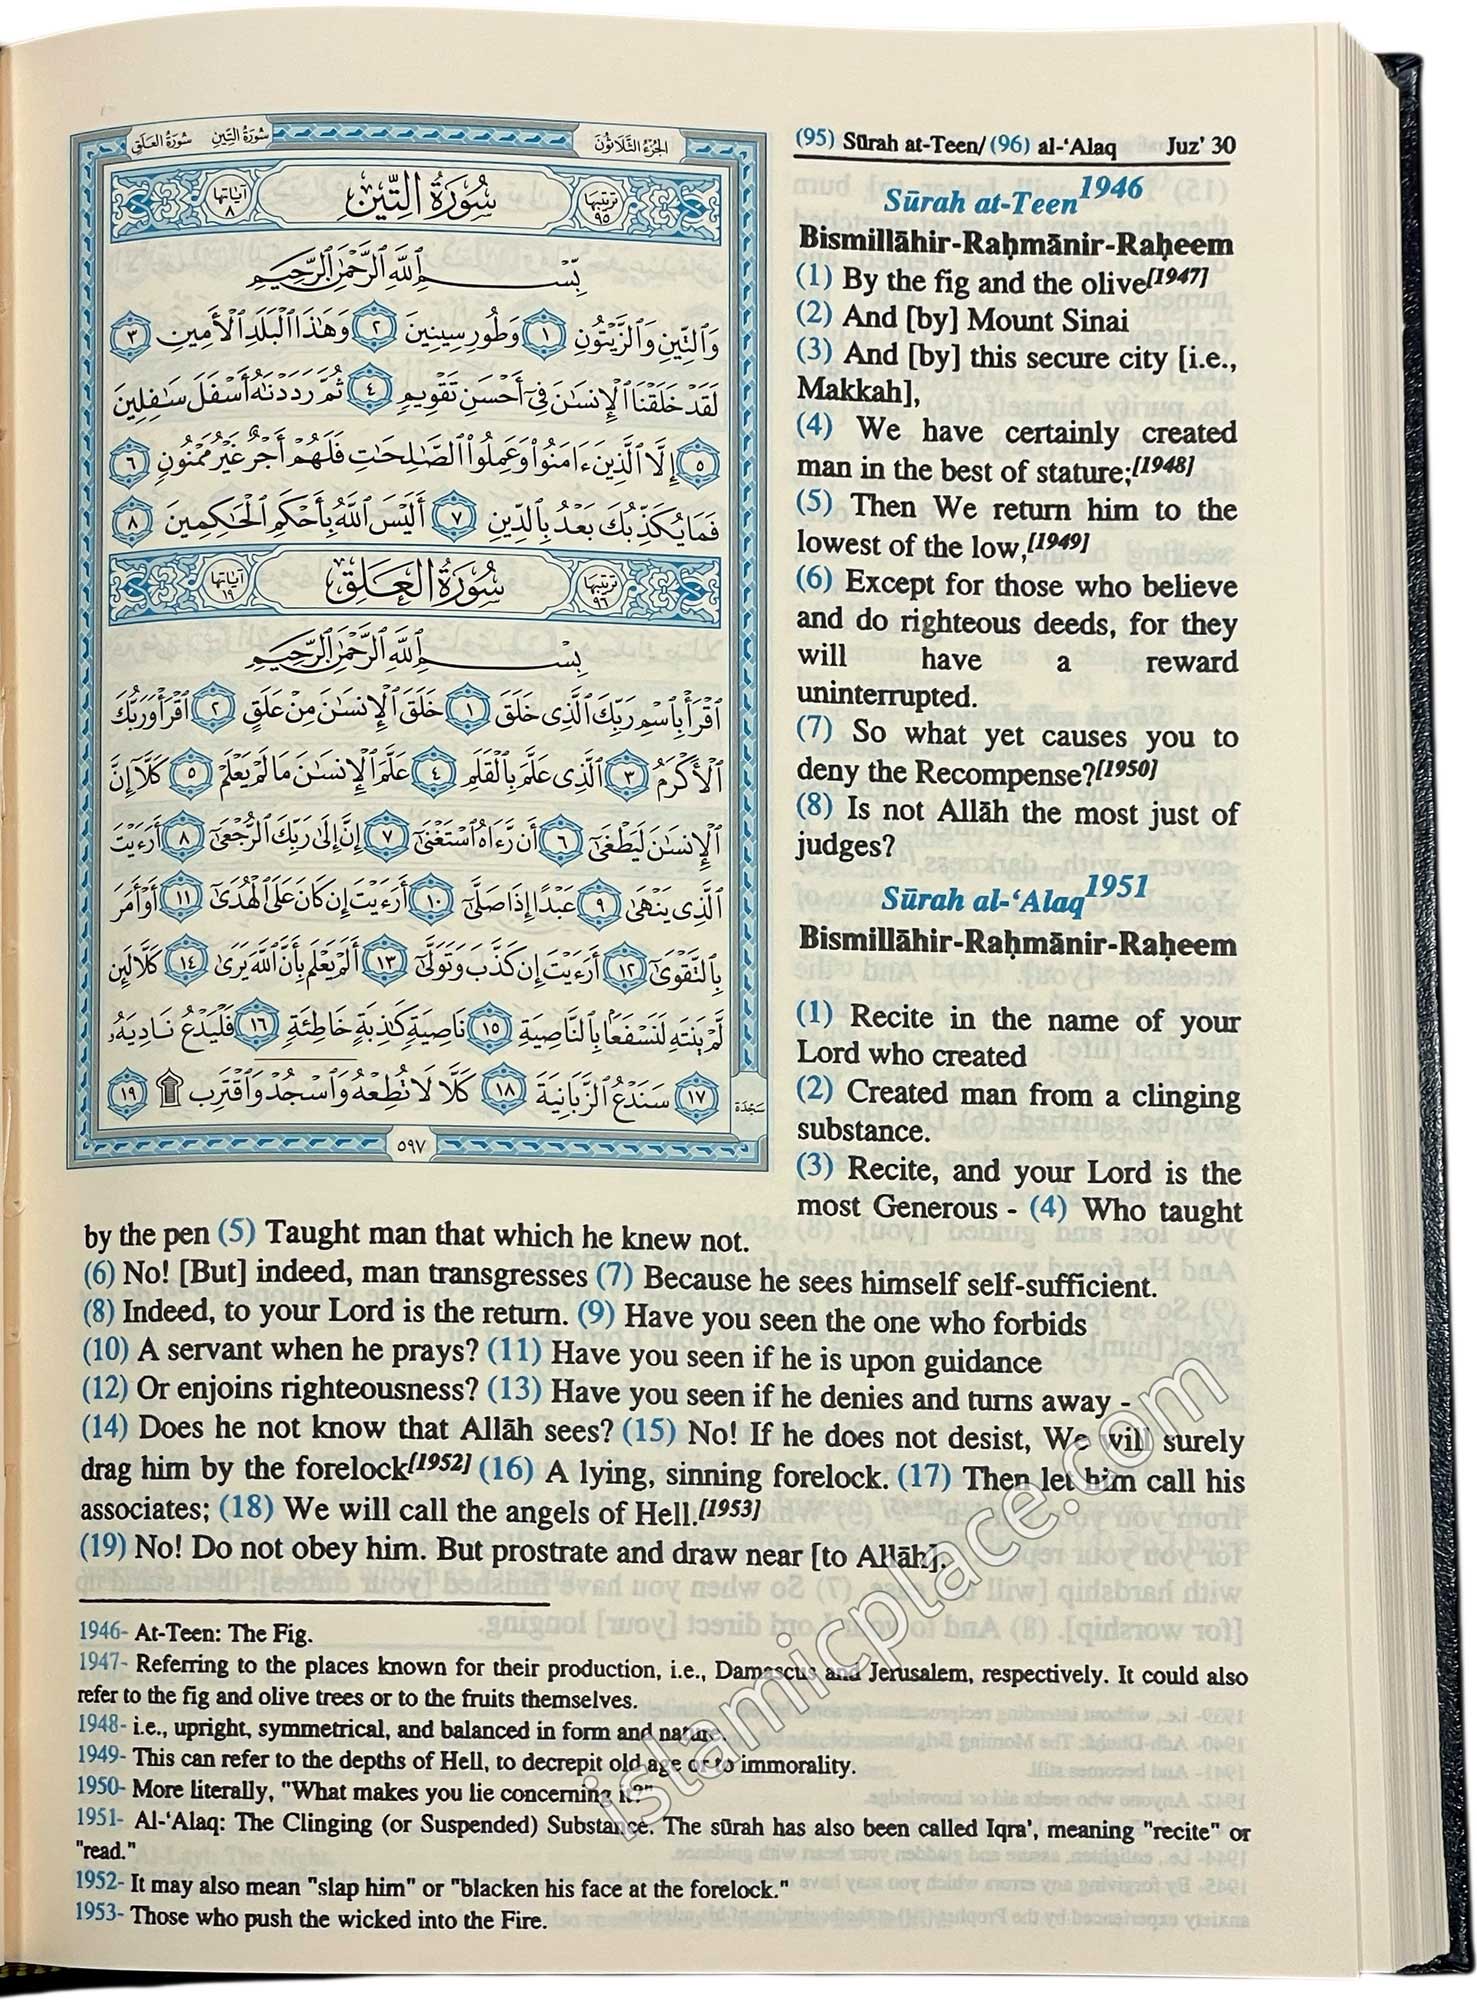 سورة العلق سورة التين الجزء الثلاثون
ترتيبها ٩٥ سُورَةُ التِّينِ آياتها ٨
بِسْمِ ٱللَّهِ ٱلرَّحْمَٰنِ ٱلرَّحِيمِ
وَٱلتِّينِ وَٱلزَّيْتُونِ ١ وَطُورِ سِينِينَ ٢ وَهَٰذَا ٱلْبَلَدِ ٱلْأَمِينِ ٣
لَقَدْ خَلَقْنَا ٱلْإِنسَٰنَ فِىٓ أَحْسَنِ تَقْوِيمٍ ٤ ثُمَّ رَدَدْنَٰهُ أَسْفَلَ سَٰفِلِينَ
٥ إِلَّا ٱلَّذِينَ ءَامَنُوا۟ وَعَمِلُوا۟ ٱلصَّٰلِحَٰتِ فَلَهُمْ أَجْرٌ غَيْرُ مَمْنُونٍ ٦
فَمَا يُكَذِّبُكَ بَعْدُ بِٱلدِّينِ ٧ أَلَيْسَ ٱللَّهُ بِأَحْكَمِ ٱلْحَٰكِمِينَ ٨
ترتيبها ٩٦ سُورَةُ العَلَقِ آياتها ١٩
بِسْمِ ٱللَّهِ ٱلرَّحْمَٰنِ ٱلرَّحِيمِ
ٱقْرَأْ بِٱسْمِ رَبِّكَ ٱلَّذِى خَلَقَ ١ خَلَقَ ٱلْإِنسَٰنَ مِنْ عَلَقٍ ٢ ٱقْرَأْ وَرَبُّكَ
ٱلْأَكْرَمُ ٣ ٱلَّذِى عَلَّمَ بِٱلْقَلَمِ ٤ عَلَّمَ ٱلْإِنسَٰنَ مَا لَمْ يَعْلَمْ ٥ كَلَّآ إِنَّ
ٱلْإِنسَٰنَ لَيَطْغَىٰٓ ٦ أَن رَّءَاهُ ٱسْتَغْنَىٰٓ ٧ إِنَّ إِلَىٰ رَبِّكَ ٱلرُّجْعَىٰٓ ٨ أَرَءَيْتَ
ٱلَّذِى يَنْهَىٰ ٩ عَبْدًا إِذَا صَلَّىٰٓ ١٠ أَرَءَيْتَ إِن كَانَ عَلَى ٱلْهُدَىٰٓ ١١ أَوْ أَمَرَ
بِٱلتَّقْوَىٰٓ ١٢ أَرَءَيْتَ إِن كَذَّبَ وَتَوَلَّىٰٓ ١٣ أَلَمْ يَعْلَم بِأَنَّ ٱللَّهَ يَرَىٰ ١٤ كَلَّا لَئِن
لَّمْ يَنتَهِ لَنَسْفَعًۢا بِٱلنَّاصِيَةِ ١٥ نَاصِيَةٍ كَٰذِبَةٍ خَاطِئَةٍ ١٦ فَلْيَدْعُ نَادِيَهُۥ
١٧ سَنَدْعُ ٱلزَّبَانِيَةَ ١٨ كَلَّا لَا تُطِعْهُ وَٱسْجُدْ وَٱقْتَرِب ۩ ١٩
سَجْدَة
٥٩٧
(95) Sūrah at-Teen/ (96) al-‘Alaq Juz' 30
Sūrah at-Teen1946
Bismillāhir-Raḥmānir-Raḥeem
(1) By the fig and the olive[1947]
(2) And [by] Mount Sinai
(3) And [by] this secure city [i.e.,
Makkah],
(4) We have certainly created
man in the best of stature;[1948]
(5) Then We return him to the
lowest of the low,[1949]
(6) Except for those who believe
and do righteous deeds, for they
will have a reward
uninterrupted.
(7) So what yet causes you to
deny the Recompense?[1950]
(8) Is not Allāh the most just of
judges?
Sūrah al-‘Alaq1951
Bismillāhir-Raḥmānir-Raḥeem
(1) Recite in the name of your
Lord who created
(2) Created man from a clinging
substance.
(3) Recite, and your Lord is the
most Generous - (4) Who taught
by the pen (5) Taught man that which he knew not.
(6) No! [But] indeed, man transgresses (7) Because he sees himself self-sufficient.
(8) Indeed, to your Lord is the return. (9) Have you seen the one who forbids
(10) A servant when he prays? (11) Have you seen if he is upon guidance
(12) Or enjoins righteousness? (13) Have you seen if he denies and turns away -
(14) Does he not know that Allāh sees? (15) No! If he does not desist, We will surely
drag him by the forelock[1952] (16) A lying, sinning forelock. (17) Then let him call his
associates; (18) We will call the angels of Hell.[1953]
(19) No! Do not obey him. But prostrate and draw near [to Allāh].
1946- At-Teen: The Fig.
1947- Referring to the places known for their production, i.e., Damascus and Jerusalem, respectively. It could also
refer to the fig and olive trees or to the fruits themselves.
1948- i.e., upright, symmetrical, and balanced in form and nature.
1949- This can refer to the depths of Hell, to decrepit old age or to immorality.
1950- More literally, "What makes you lie concerning it?"
1951- Al-‘Alaq: The Clinging (or Suspended) Substance. The sūrah has also been called Iqra', meaning "recite" or
"read."
1952- It may also mean "slap him" or "blacken his face at the forelock."
1953- Those who push the wicked into the Fire.
islamicplace.com